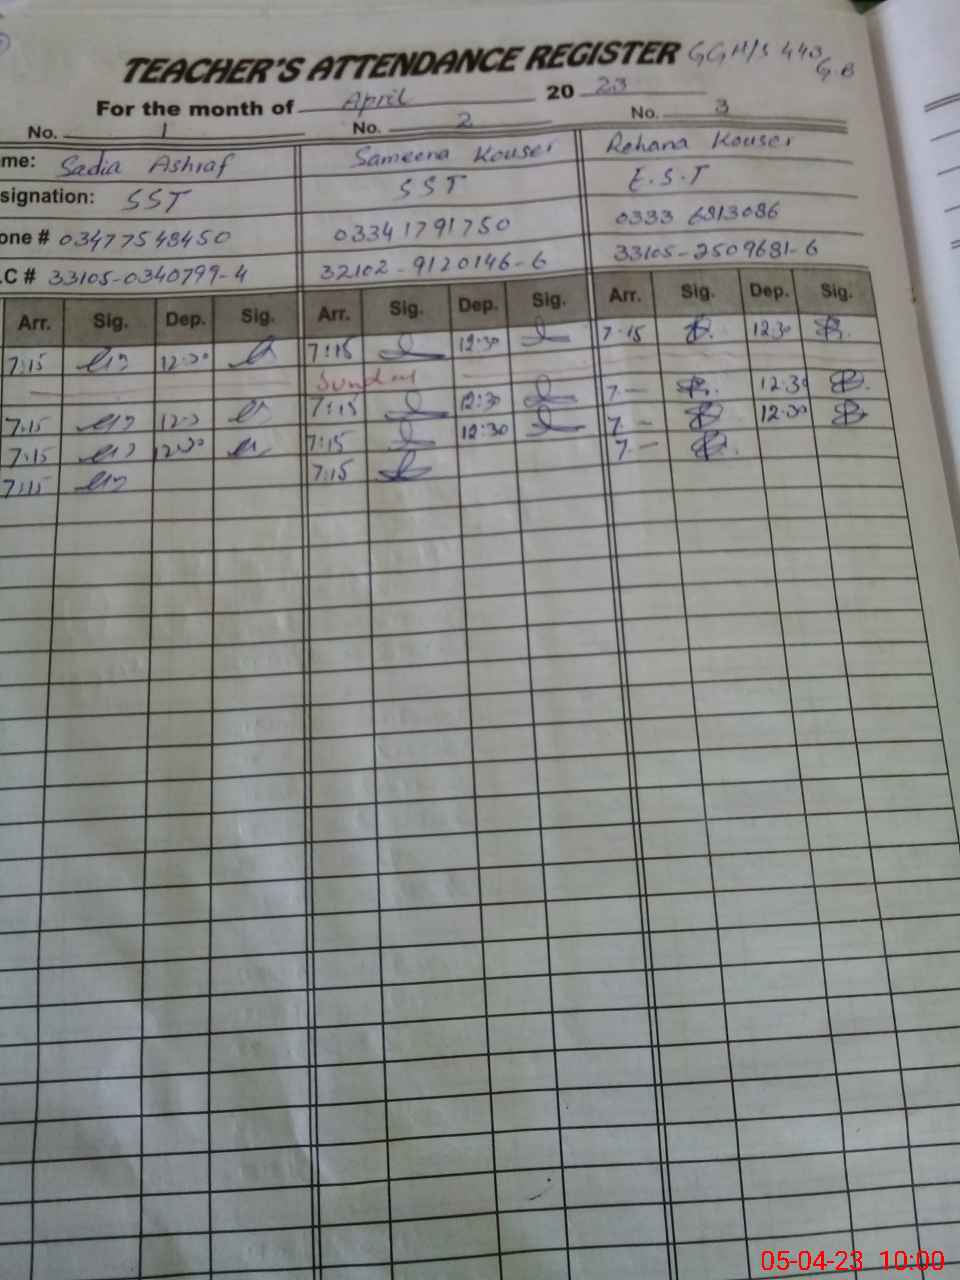 TEACHER'S ATTENDANCE REGISTER GGH/S 443/G.B
For the month of April 20 23
No. 1 No. 2 No. 3
me: Sadia Ashraf Sameena Kouser Rehana Kouser
signation: SST SST E.S.T
one # 03477548450 03341791750 0333 6813086
.C # 33105-0340799-4 32102-9120146-6 33105-2509681-6
Arr. Sig. Dep. Sig. Arr. Sig. Dep. Sig. Arr. Sig. Dep. Sig.
7:15 12:30 7:15 12:30 7:15 12:30
Sunday
7:15 12:30 7:15 12:30 7- 12:30
7:15 12:30 7:15 12:30 7- 12:30
7:15 7:15 7-
05-04-23 10:00